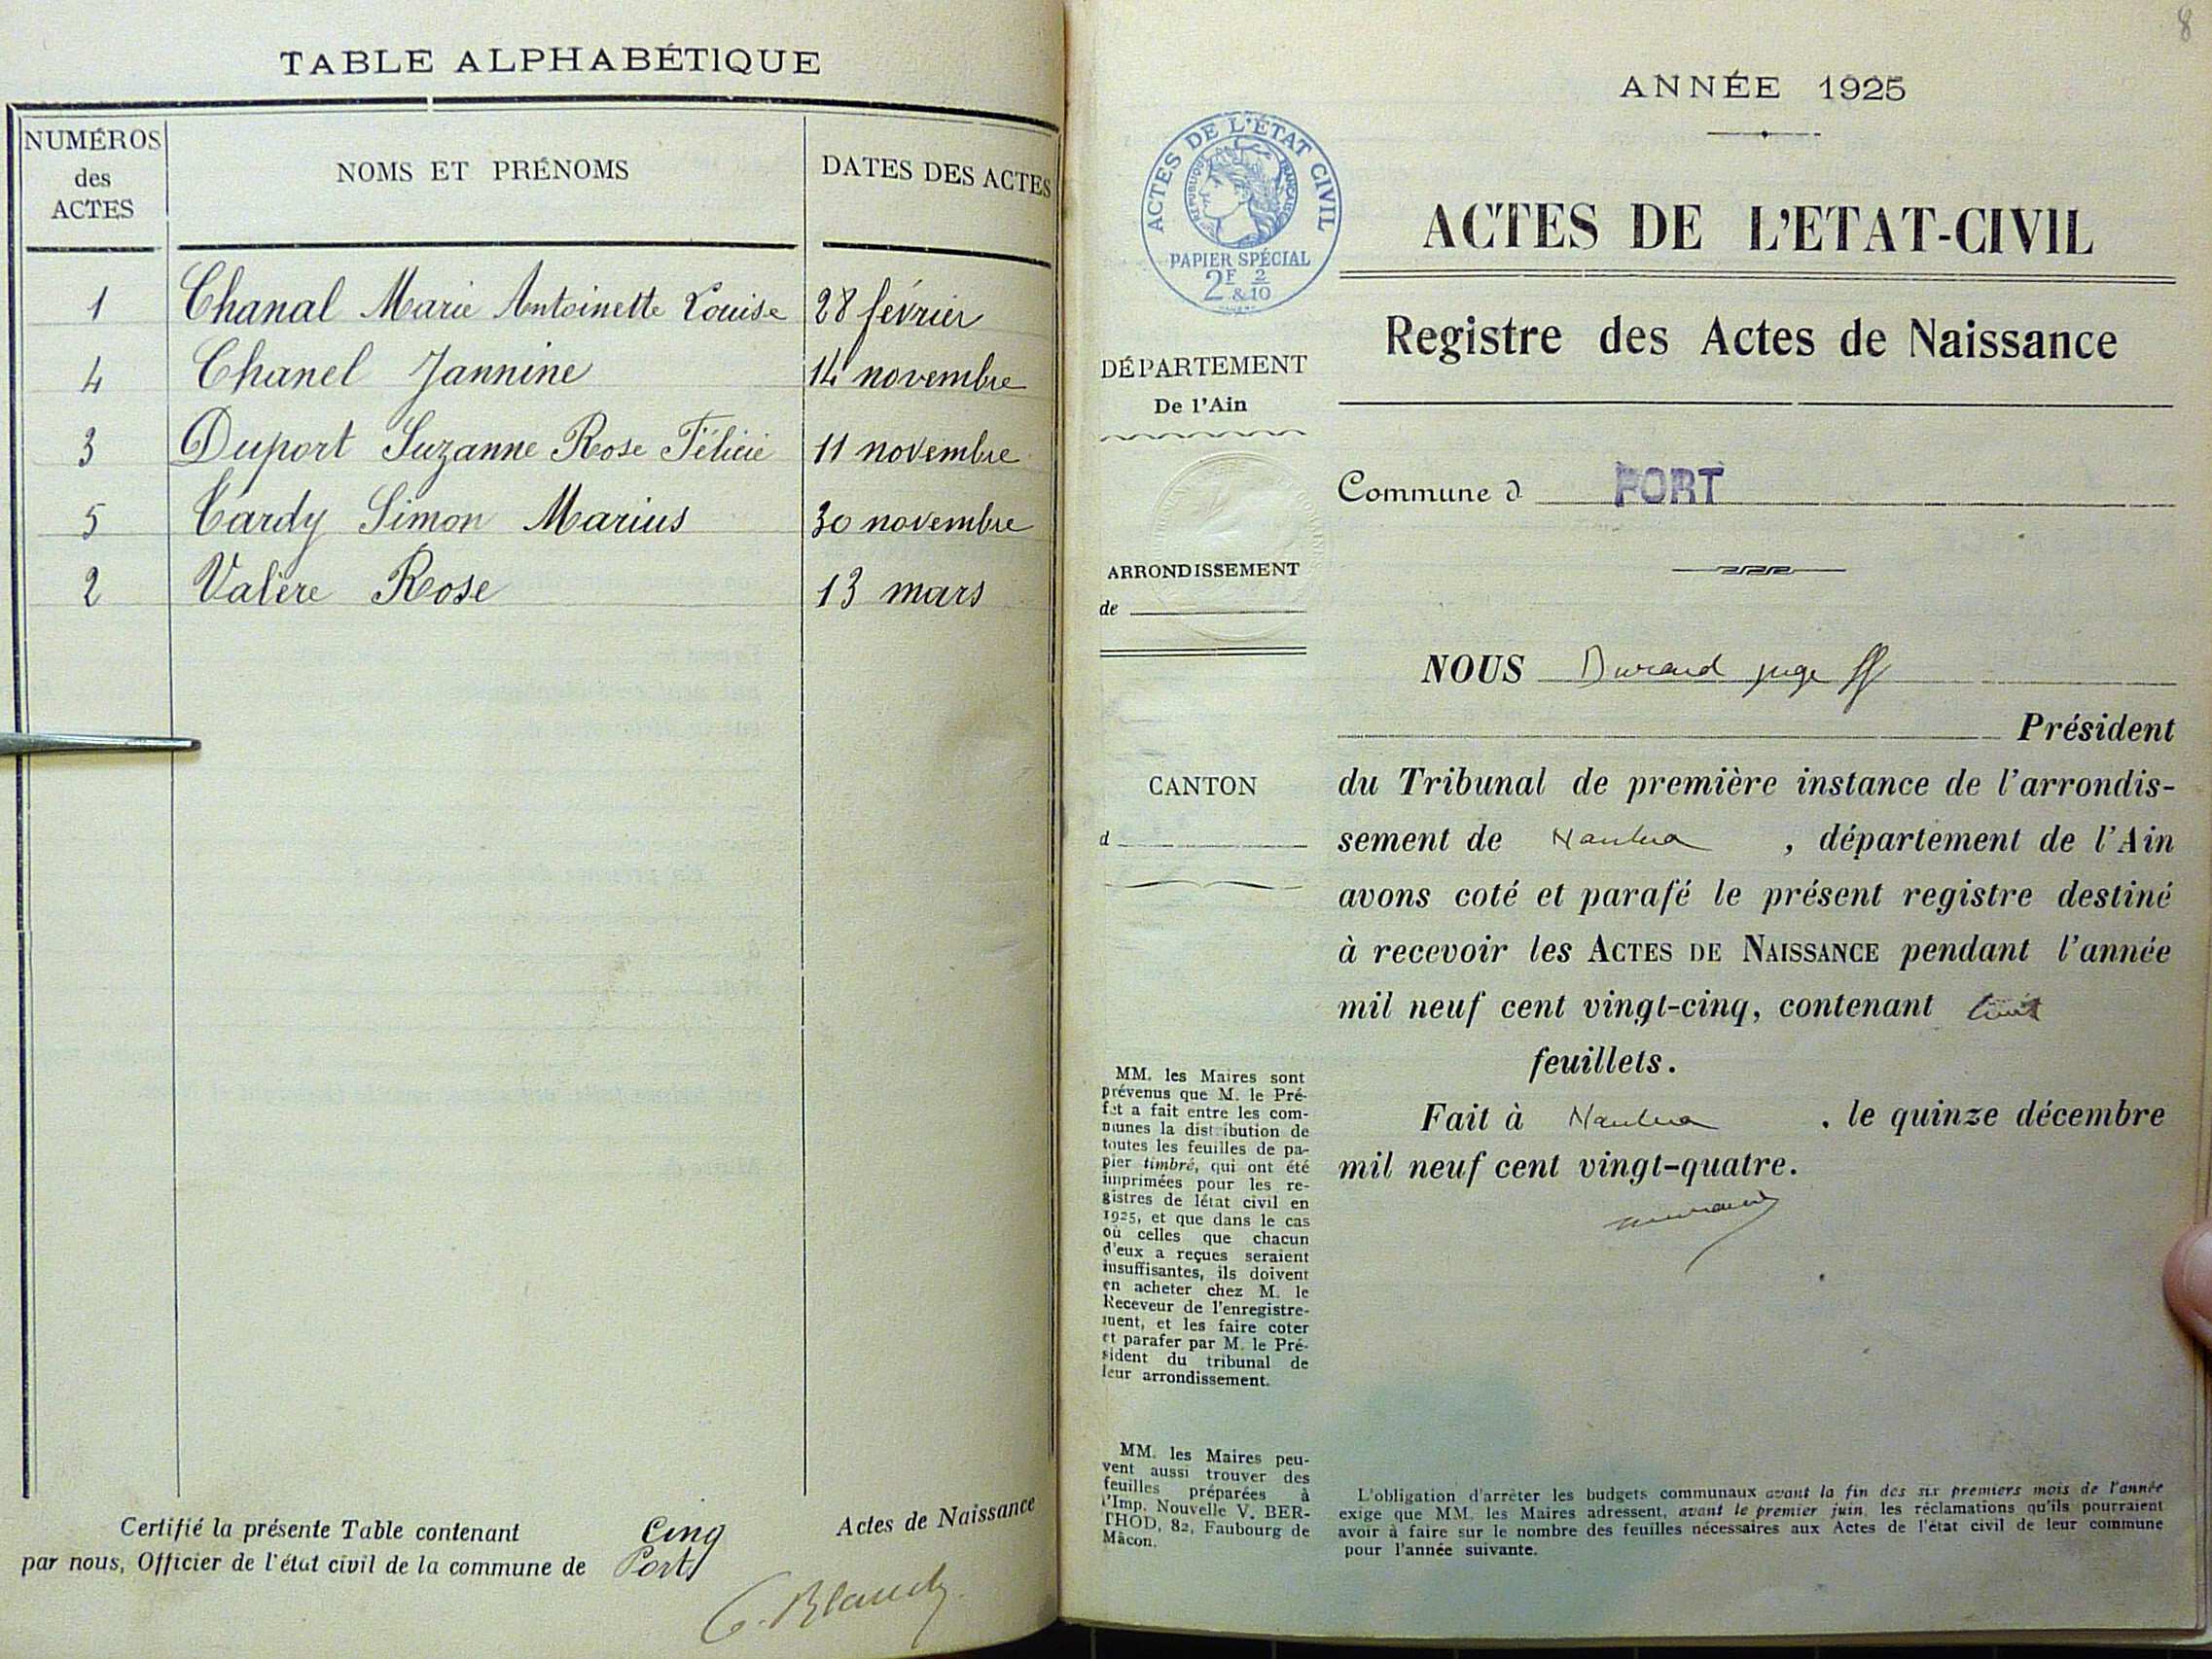 TABLE ALPHABÉTIQUE
NUMÉROS des ACTES
NOMS ET PRÉNOMS
DATES DES ACTES
1 Chanal Marie Antoinette Louise 28 février
4 Chanel Jannine 14 novembre
3 Duport Suzanne Rose Félicie 11 novembre
5 Tardy Simon Marius 30 novembre
2 Valère Rose 13 mars
Certifié la présente Table contenant Cinq Actes de Naissance
par nous, Officier de l'état civil de la commune de Port
8
ANNÉE 1925
ACTES DE L'ÉTAT CIVIL
RÉPUBLIQUE FRANÇAISE
PAPIER SPÉCIAL
2F & 2/10
ACTES DE L'ETAT-CIVIL
Registre des Actes de Naissance
DÉPARTEMENT
De l'Ain
Commune d PORT
ARRONDISSEMENT
de
CANTON
d
NOUS Durand juge ff
Président
du Tribunal de première instance de l'arrondis-
sement de Nantua , département de l'Ain
avons coté et parafé le présent registre destiné
à recevoir les ACTES DE NAISSANCE pendant l'année
mil neuf cent vingt-cinq, contenant huit
feuillets.
Fait à Nantua , le quinze décembre
mil neuf cent vingt-quatre.
MM. les Maires sont
prévenus que M. le Pré-
fet a fait entre les com-
munes la distribution de
toutes les feuilles de pa-
pier timbré, qui ont été
imprimées pour les re-
gistres de létat civil en
1925, et que dans le cas
où celles que chacun
d'eux a reçues seraient
insuffisantes, ils doivent
en acheter chez M. le
Receveur de l'enregistre-
ment, et les faire coter
et parafer par M. le Pré-
sident du tribunal de
leur arrondissement.
MM. les Maires peu-
vent aussi trouver des
feuilles préparées à
l'Imp. Nouvelle V. BER-
THOD, 82, Faubourg de
Mâcon.
L'obligation d'arrêter les budgets communaux avant la fin des six premiers mois de l'année
exige que MM. les Maires adressent, avant le premier juin, les réclamations qu'ils pourraient
avoir à faire sur le nombre des feuilles nécessaires aux Actes de l'état civil de leur commune
pour l'année suivante.